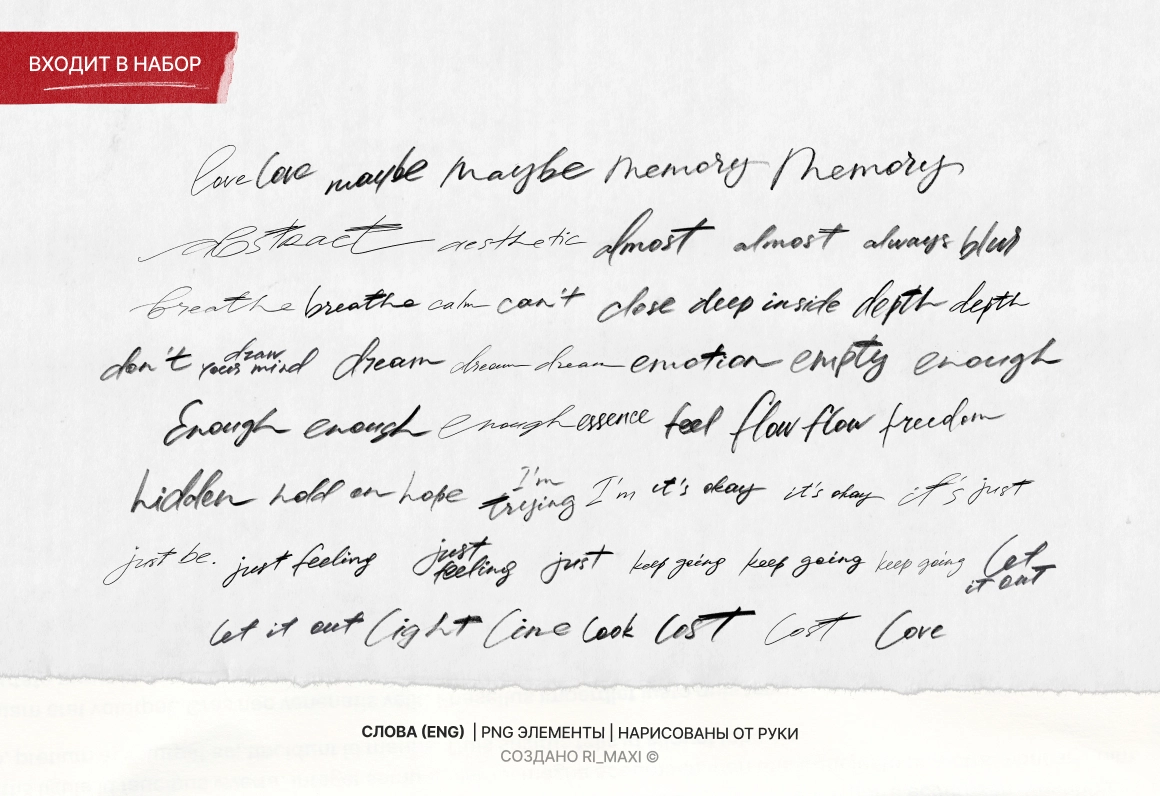 ВХОДИТ В НАБОР
love love maybe maybe memory Memory
abstract aesthetic almost almost always blur
breathe breathe calm can't close deep inside depth depth
don't draw your mind dream dream dream emotion empty enough
Enough enough enough essence feel flow flow freedom
hidden hold on hope I'm trying I'm it's okay it's okay it's just
just be. just feeling just feeling just keep going keep going keep going let it out
let it out light line look lost lost love
СЛОВА (ENG) | PNG ЭЛЕМЕНТЫ | НАРИСОВАНЫ ОТ РУКИ
СОЗДАНО RI_MAXI ©